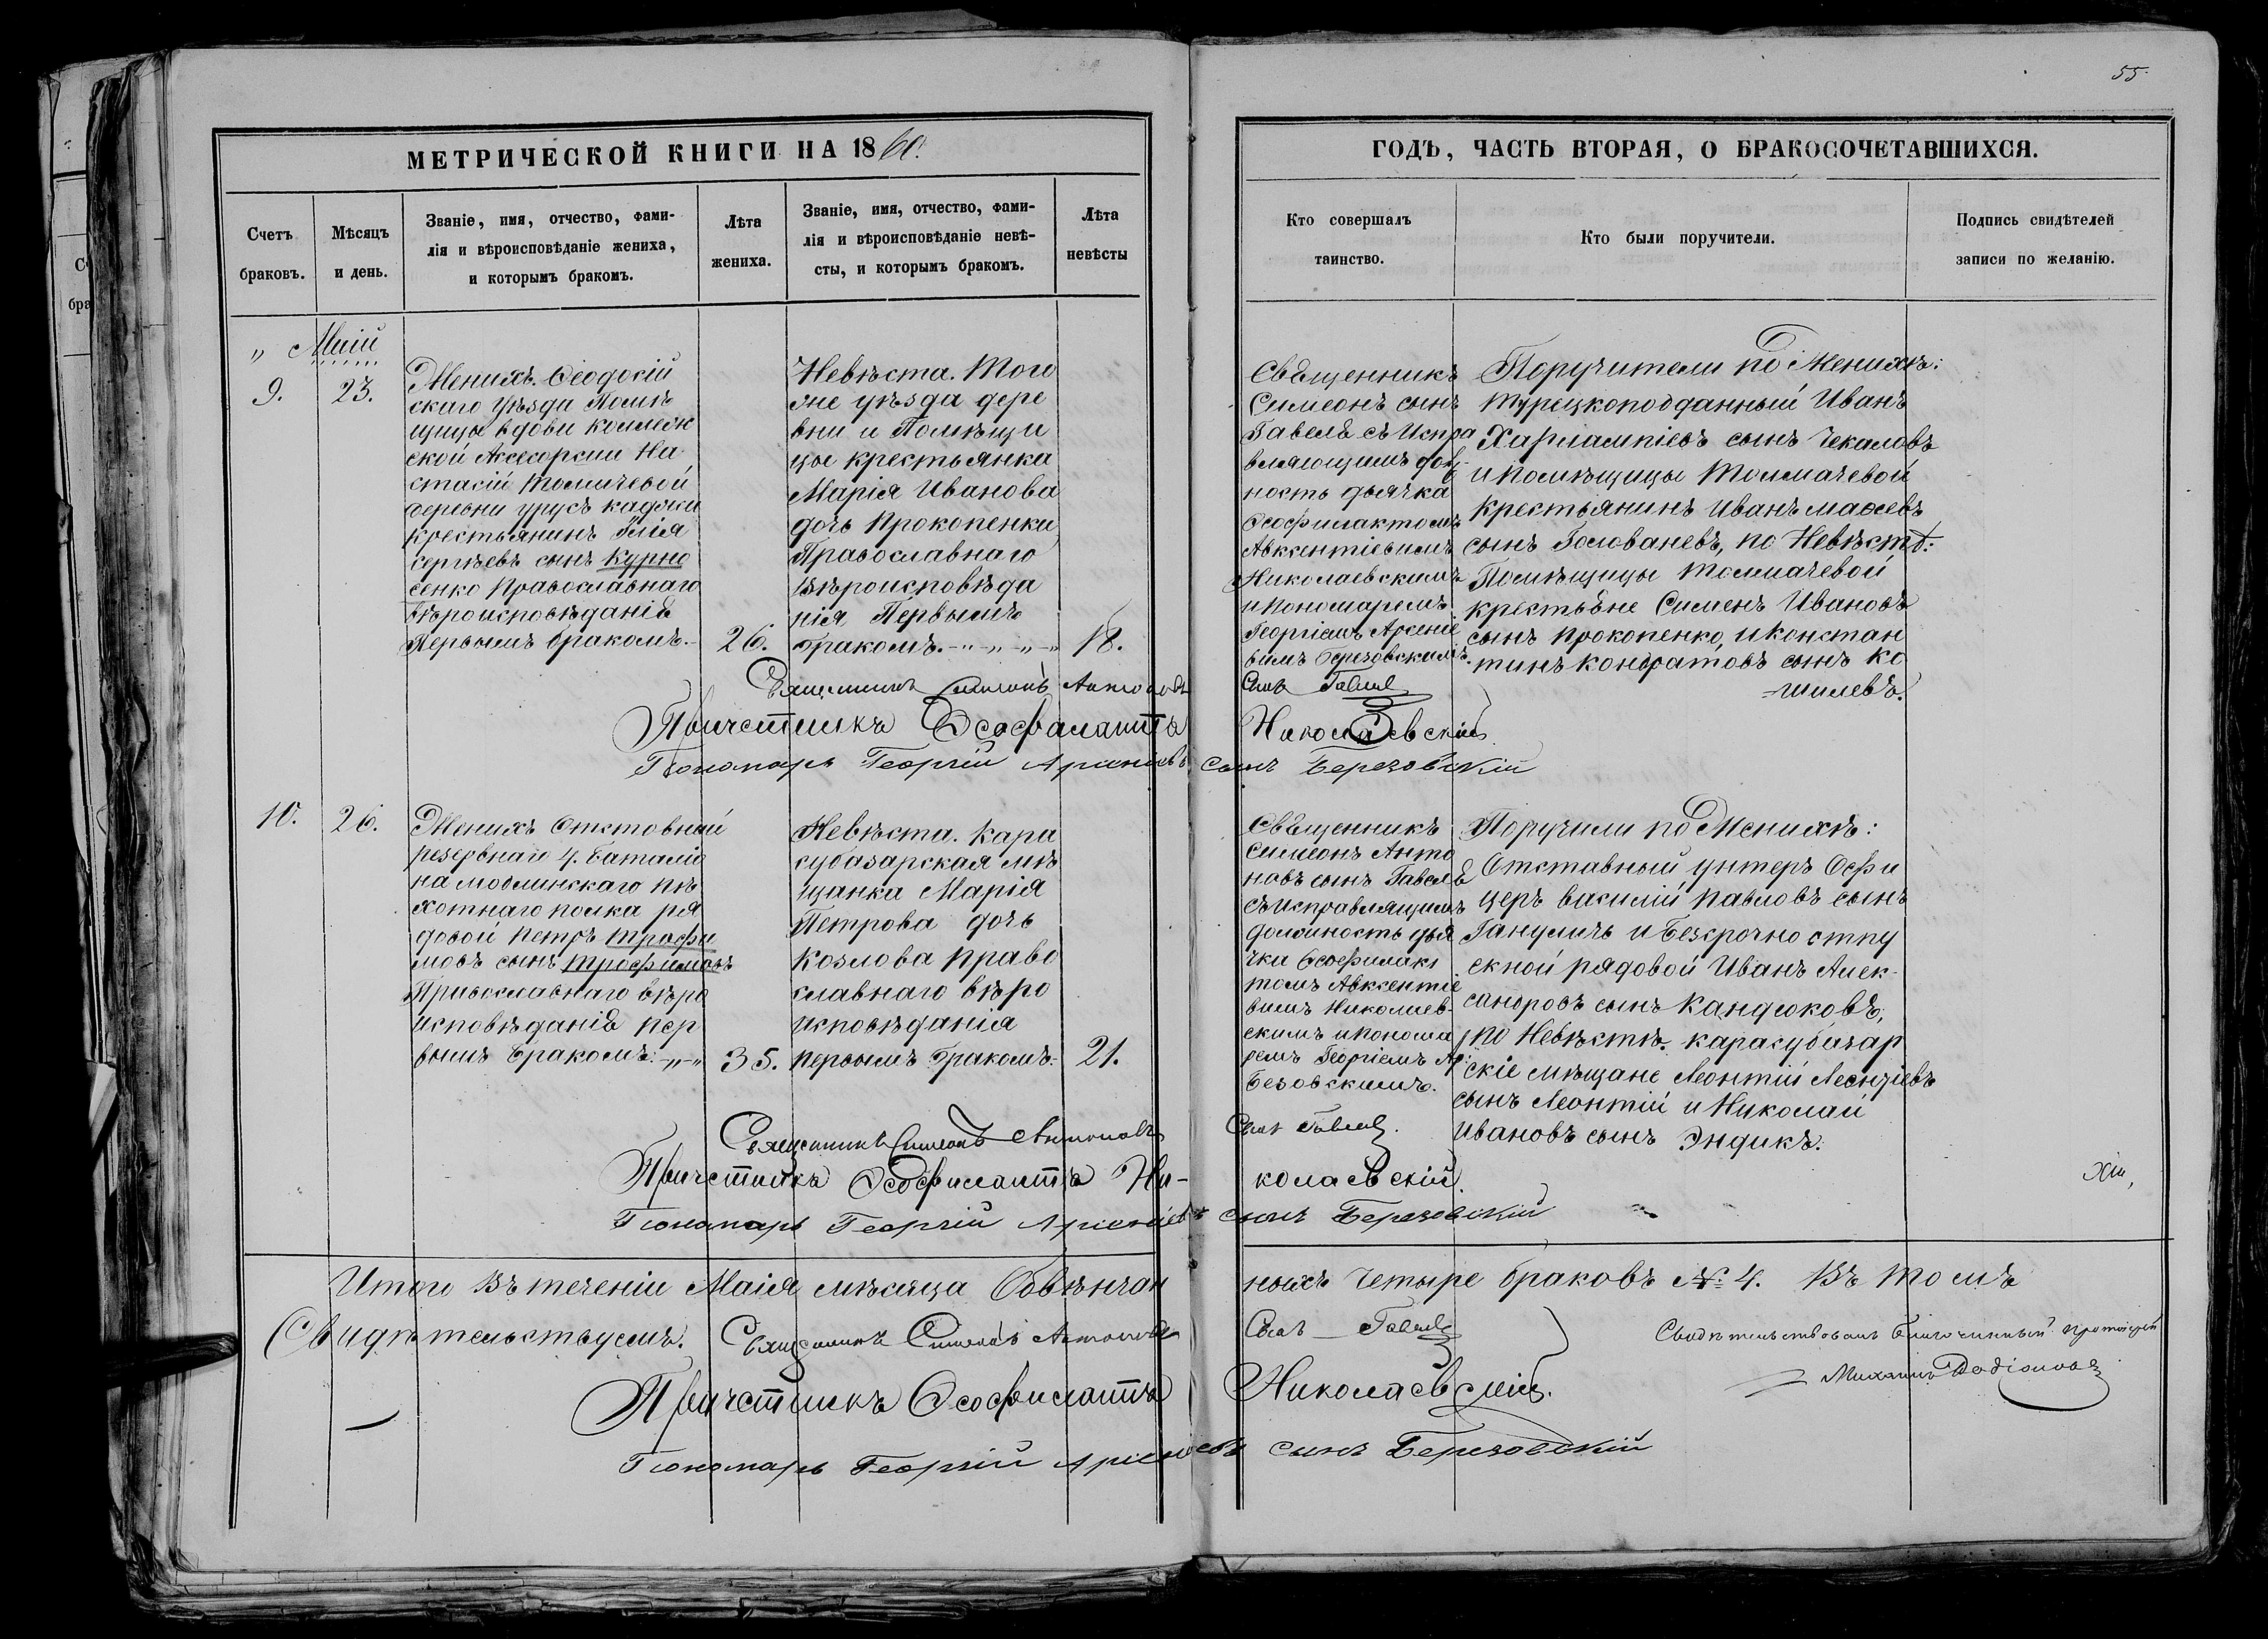 55.
МЕТРИЧЕСКОЙ КНИГИ НА 1860.
ГОДЪ, ЧАСТЬ ВТОРАЯ, О БРАКОСОЧЕТАВШИХСЯ.
Счетъ
браковъ.
Мѣсяцъ
и день.
Званіе, имя, отчество, фами-
лія и вѣроисповѣданіе жениха,
и которымъ бракомъ.
Лѣта
жениха.
Званіе, имя, отчество, фами-
лія и вѣроисповѣданіе невѣ-
сты, и которымъ бракомъ.
Лѣта
невѣсты
Кто совершалъ
таинство.
Кто были поручители.
Подпись свидѣтелей
записи по желанію.
" Маій
9.
23.
Женихъ. Ѳеодосій
скаго уѣзда Помѣ
щицы вдовы коллеж
ской Аксесорши На
стасіи Толмачевой
деревни урусъ каджи
крестьянинъ Илія
сергѣевъ сынъ Курно
сенко Православнаго
вѣроисповѣданія
Первымъ бракомъ.
26.
Невѣста. Того
же уѣзда дере
вни и Помѣщи
цы крестьянка
Марія Иванова
дочь Прокопенки
Православнаго
Вѣроисповѣда
нія Первымъ
бракомъ.-"-"-"-"
18.
Священникъ
Симеонъ сынъ
Гавелъ съ Испра
вляющимъ долж-
ность дьячка
Ѳеофилактомъ
Авксентіевымъ
Николаевскимъ
и пономаремъ
Георгіемъ Арсеніе
вымъ Березовскимъ.
Поручители по Женихѣ:
Турецкоподданный Иванъ
Харлампіевъ сынъ Чекаловъ
и помѣщицы Толмачевой
крестьянинъ Иванъ Маѳеевъ
сынъ Голованевъ, по Невѣстѣ:
Помѣщицы Толмачевой
крестьяне Сименъ Ивановъ
сынъ Прокопенко, и Констан
тинъ Кондратовъ сынъ Ко
шилевъ.
Священникъ Симеонъ Антоновъ Сынъ Гавель
Причетникъ Ѳеофилактъ Николаевскій
Пономарь Георгій Арсеніевъ сынъ Березовскій
10.
26.
Женихъ Отставный
резервнаго 4. Баталіо
на Модлинскаго пѣ
хотнаго полка ря
довой Петръ Трофи
мовъ сынъ Трофимовъ
Православнаго вѣро
исповѣданія пер
вымъ бракомъ.-"-"
35.
Невѣста. Кара
субазарская мѣ
щанка Марія
Петрова дочь
Козлова право
славнаго вѣро
исповѣданія
первымъ бракомъ.
21.
Священникъ
Симеонъ Анто
новъ сынъ Гавелъ
съ исправляющимъ
должность дья
чка Ѳеофилак
томъ Авксентіе
вымъ Николаев-
скимъ и понома
ремъ Георгіемъ Ар:
Безовскимъ.
Поручили по Женихѣ:
Отставный унтеръ Офи
церъ Василій Павловъ сынъ
Гануличъ и Безсрочно отпу
скной рядовой Иванъ Алек-
сандровъ сынъ Кандюковъ,
по Невѣстѣ. карасубазар
скіе мѣщане Леонтій Леонтіевъ
сынъ Леонтій и Николай
Ивановъ сынъ Эндикъ.
Священникъ Симеонъ Антоновъ Сынъ Гавель.
Причетникъ Ѳеофилактъ Ни-колаевскій.
Пономарь Георгій Арсеніевъ сынъ Березовскій
Итого въ теченіи Маія мѣсяца Обвѣнчанныхъ Четыре браковъ № 4. Въ томъ
Свидѣтельствуемъ. Священникъ Симеонъ Антоновъ Сынъ Гавель
Причетникъ Ѳеофилактъ Николаевскій.
Пономарь Георгій Арсеніевъ сынъ Березовскій
Свидѣтельствовалъ Благочинный протоіерей
Михаилъ Родіоновъ